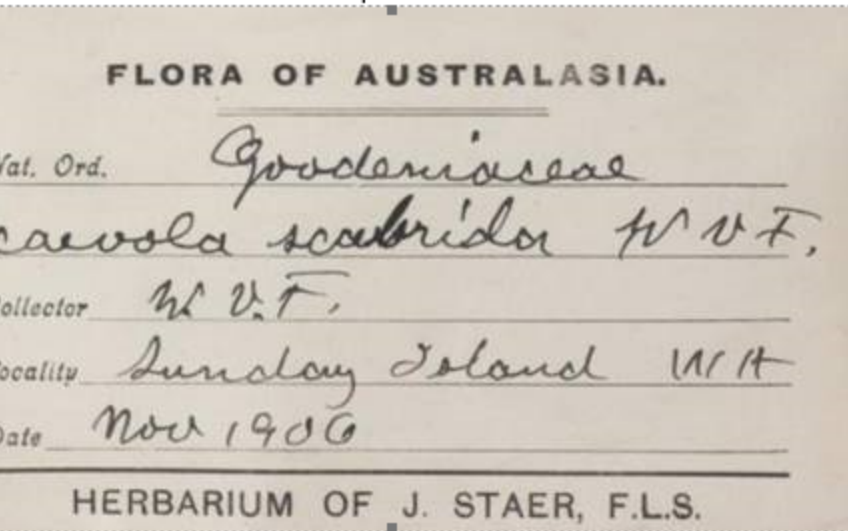 FLORA OF AUSTRALASIA.
Nat. Ord. Goodeniaceae
caevola scabrida W V F.
ollector W. V. F.
ocality Sunday Island W A
Date Nov 1906
HERBARIUM OF J. STAER, F.L.S.